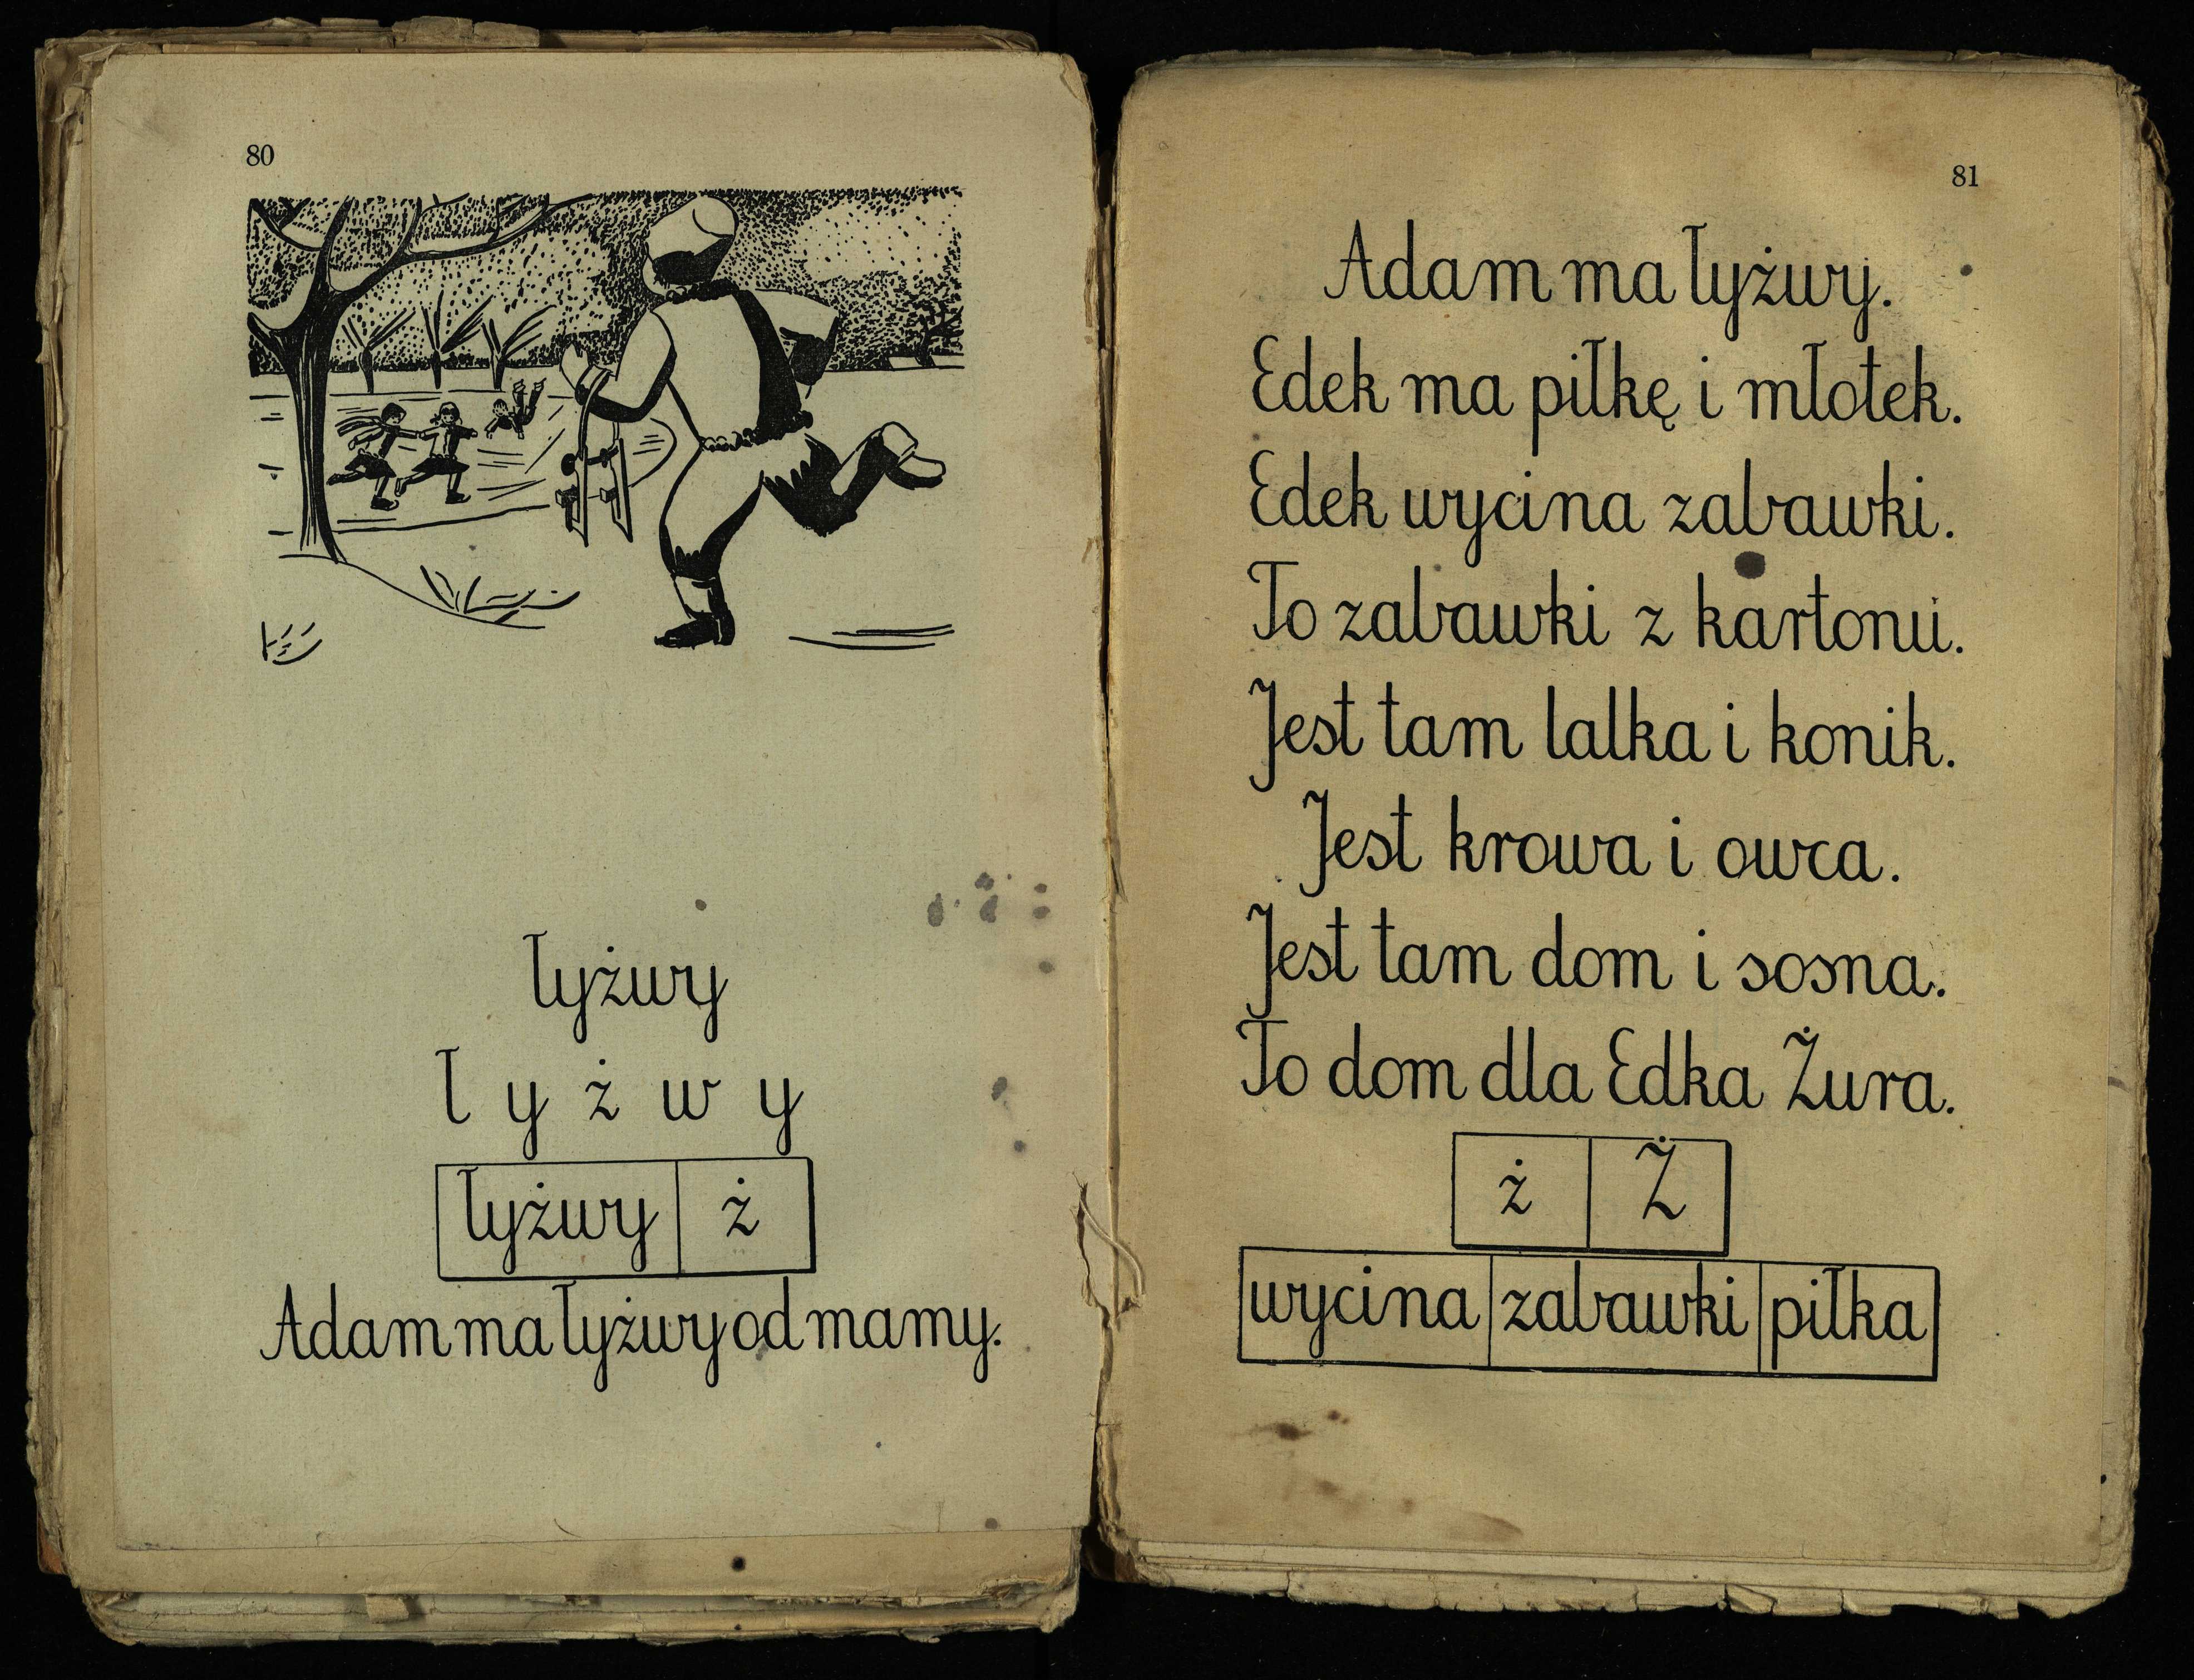 80
łyżwy
ł y ż w y
łyżwy ż
Adam ma łyżwy od mamy.
81
Adam ma łyżwy.
Edek ma piłkę i młotek.
Edek wycina zabawki.
To zabawki z kartonu.
Jest tam lalka i konik.
Jest krowa i owca.
Jest tam dom i sosna.
To dom dla Edka Żura.
ż Ż
wycina zabawki piłka